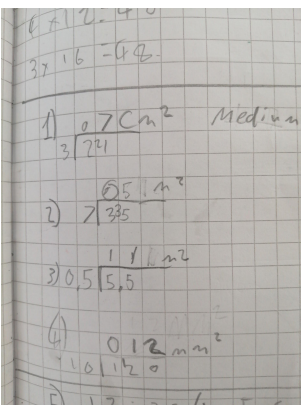 4 x 12 = 48
3 x 16 = 48
1) 07 cm² Medium
3 | 2²1
2) 05 m²
7 | 3³5
3) 11 m²
0,5 | 5,5
4) 012 mm²
10 | 120
5)